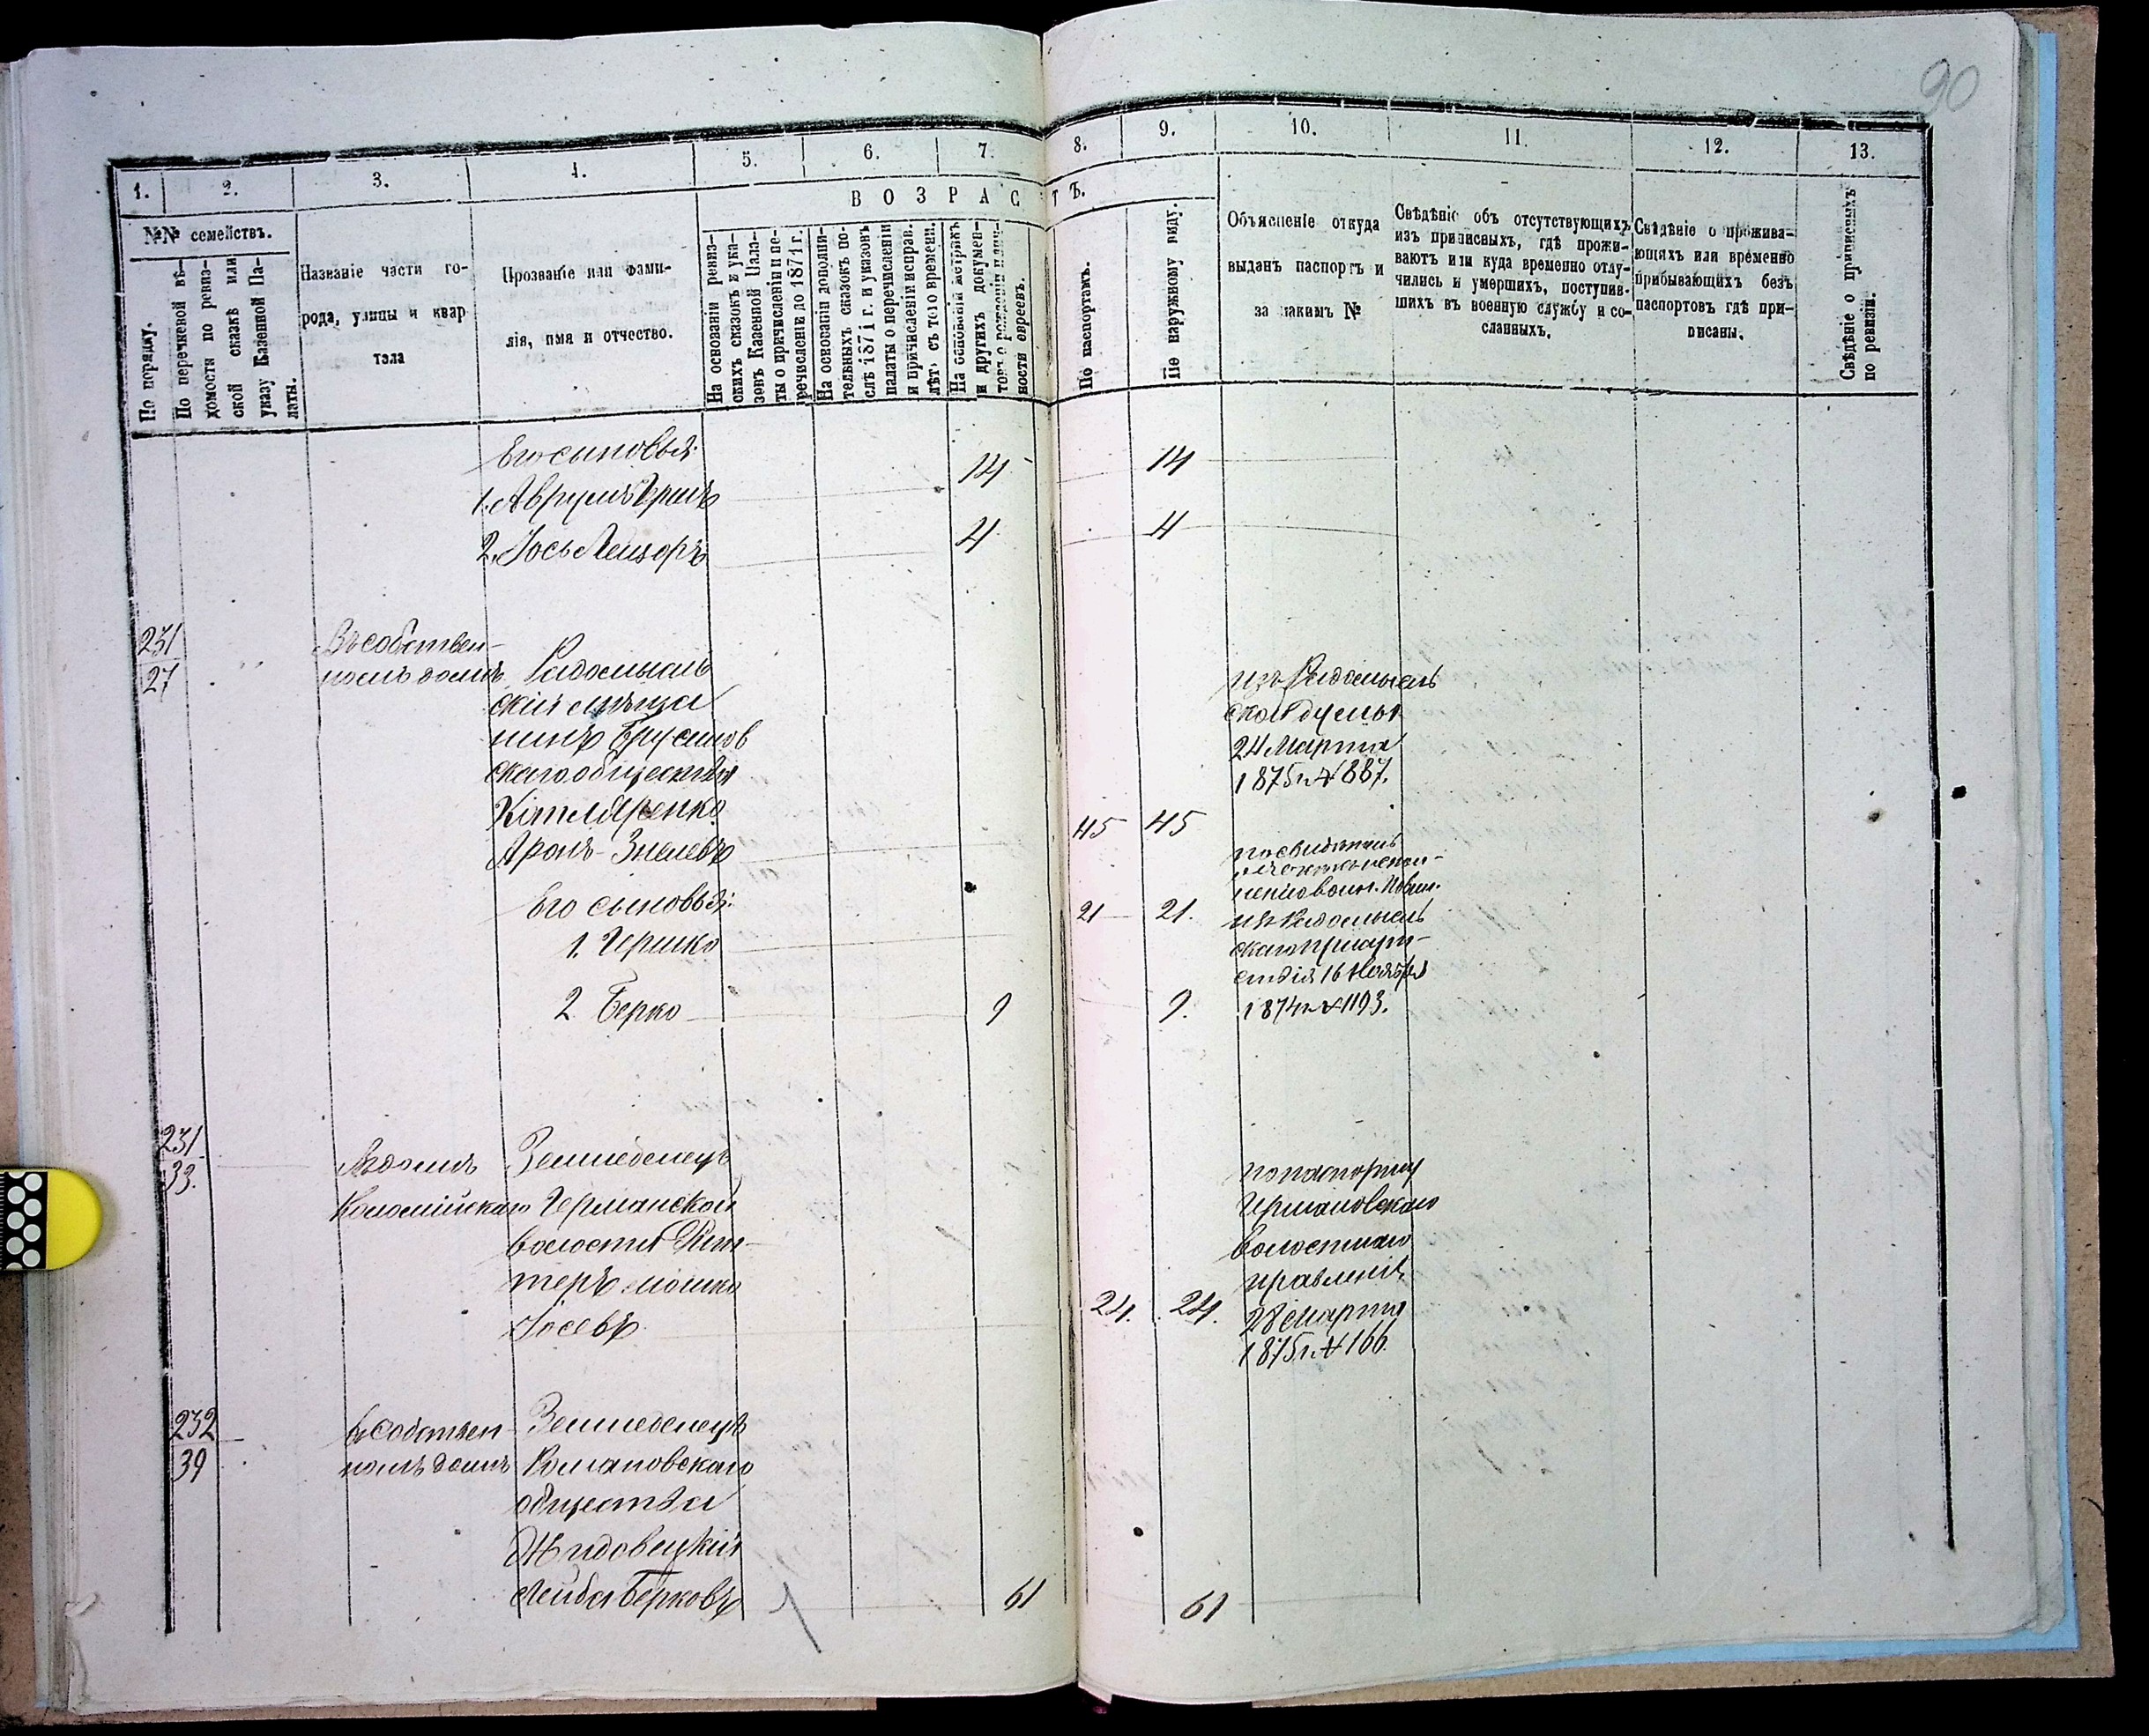 90
1. 2. 3. 4. 5. 6. 7. 8. 9. 10. 11. 12. 13.
№№ семействъ.
По порядку.
По перечневой вѣ-
домости по ревиз-
ской сказкѣ или
указу Казенной Па-
латы.
Названіе части го-
рода, улицы и квар
тала
Прозваніе или фами-
лія, имя и отчество.
ВОЗРАСТЪ.
На основаніи ревиз-
скихъ сказокъ и ука-
зовъ Казенной Пала-
ты о причисленіи и пе-
речисленіе до 1871 г.
На основаніи дополни-
тельныхъ сказокъ по-
слѣ 1871 г. и указовъ
палаты о перечисленіи
и причисленіи исправ.
лѣтъ съ того времени.
На основаніи метрикъ
и другихъ докумен-
товъ о рожденіи
ности евреевъ.
По паспортамъ.
По наружному виду.
Объясненіе откуда
выданъ паспортъ и
за какимъ №
Свѣдѣніе объ отсутствующихъ
изъ приписныхъ, гдѣ прожи-
ваютъ или куда временно отлу-
чились и умершихъ, поступив-
шихъ въ военную службу и со-
сланныхъ.
Свѣдѣніе о прожива-
ющихъ или временно
прибывающихъ безъ
паспортовъ гдѣ при-
писаны.
Свѣдѣніе о приписныхъ
по ревизіи.
Его сыновья:
1. Аврумъ Гершъ 14 14
2. Іось Лейзоръ 4 4
231
27
Въ собствен-
номъ домѣ
Радомысль
скій мѣща
нинъ Брусилов
скаго общества
Котляренко
Аронъ 45 45
изъ Радомысль
ской думы
24 Марта
1875 г. № 887.
Его сыновья:
1. Гершко 21 21.
изъ Радомысль
скаго
16 Ноября
1874 г. № 1193.
2 Берко 9 9.
231
33.
Въ домѣ
Коломійскаго
Земледелецъ
Германской
волости Рит-
теръ Мошко
Іосевъ 24. 24.
по паспорту
Германовскаго
волостнаго
правленія
28 Марта
1875 г. № 166.
232
39
въ собствен
номъ домѣ
Земледелецъ
Романовскаго
общества
Жидовецкій
Лейба Берковъ 61 61